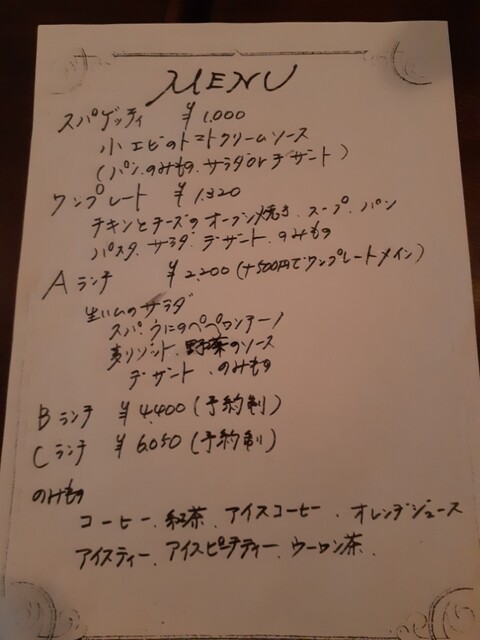 MENU
スパゲッティ ¥1,000
小エビのトマトクリームソース
(パン、のみもの、サラダorデザート)
ワンプレート ¥1,320
チキンとチーズのオーブン焼き、スープ、パン
パスタ、サラダ、デザート、のみもの
Aランチ ¥2,200(+500円でワンプレートメイン)
生ハムのサラダ
スパ うにのペペロンチーノ
リゾット、野菜のソース
デザート、のみもの
Bランチ ¥4,400(予約制)
Cランチ ¥6,050(予約制)
のみもの
コーヒー、紅茶、アイスコーヒー、オレンジジュース
アイスティー、アイスピーチティー、ウーロン茶、